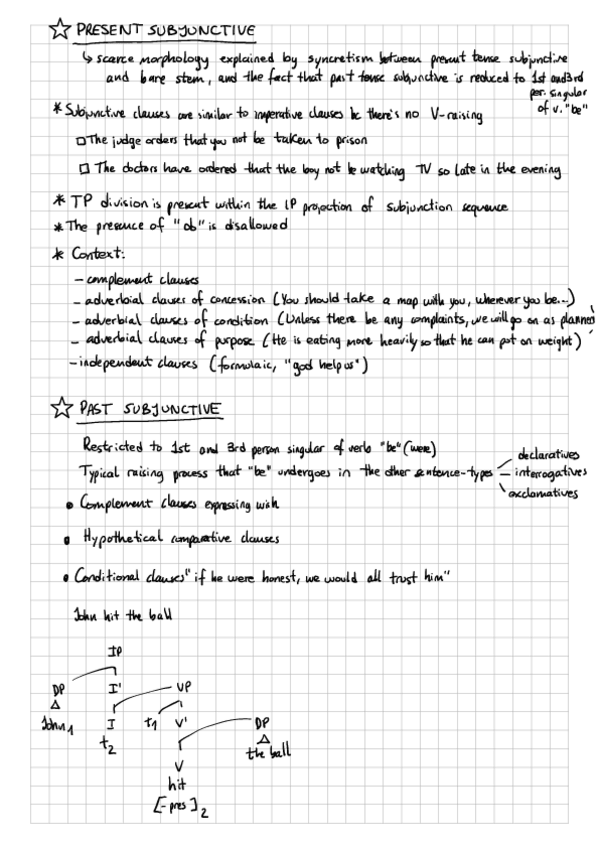 ☆ PRESENT SUBJUNCTIVE
↳ scarce morphology explained by syncretism between present tense subjunctive
and bare stem, and the fact that past tense subjunctive is reduced to 1st and 3rd
per. singular
of v. "be"
* Subjunctive clauses are similar to imperative clauses bc there's no V-raising
□ The judge orders that you not be taken to prison
□ The doctors have ordered that the boy not be watching TV so late in the evening
* TP division is present within the IP projection of subjunction sequence
* The presence of "do" is disallowed
* Context:
- complement clauses
- adverbial clauses of concession (You should take a map with you, wherever you be...)
- adverbial clauses of condition (Unless there be any complaints, we will go on as planned)
- adverbial clauses of purpose (He is eating more heavily so that he can put on weight)
- independent clauses (formulaic, "god help us")
☆ PAST SUBJUNCTIVE
Restricted to 1st and 3rd person singular of verb "be" (were)
Typical raising process that "be" undergoes in the other sentence-types
declaratives
interrogatives
exclamatives
• Complement clauses expressing wish
• Hypothetical comparative clauses
• Conditional clauses "if he were honest, we would all trust him"
John hit the ball
IP
DP I' VP
John1 I t1 V' DP
t2 the ball
V
hit
[-pres]2